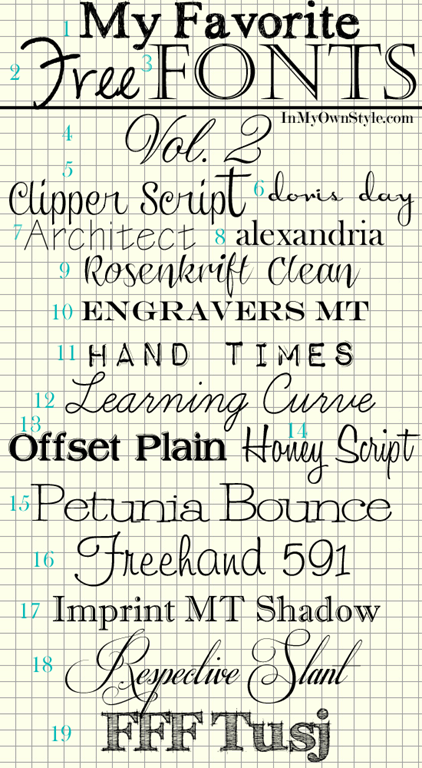 1 My Favorite
2 Free 3 FONTS
InMyOwnStyle.com
4 Vol. 2
5 Clipper Script 6 doris day
7 Architect 8 alexandria
9 Rosenkrift Clean
10 ENGRAVERS MT
11 HAND TIMES
12 Learning Curve
13 Offset Plain 14 Honey Script
15 Petunia Bounce
16 Freehand 591
17 Imprint MT Shadow
18 Respective Slant
19 FFF Tusj